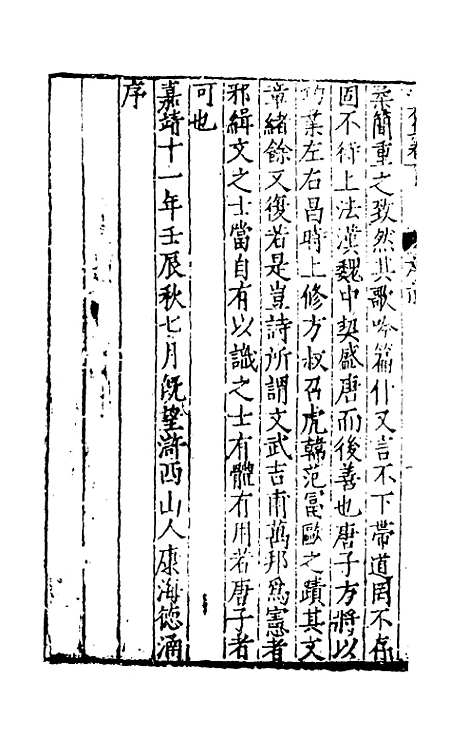 柔簡重之致然其歌吟篇什又言不下帶道罔不存
固不待上法漢魏中契盛唐而後善也唐子方將以
功業左右昌時上修方叔召虎韓范富歐之蹟其文
章緒餘又復若是豈詩所謂文武吉甫萬邦爲憲者
邪緝文之士當自有以識之士有體有用若唐子者
可也
嘉靖十一年壬辰秋七月旣望滸西山人康海德涵
序